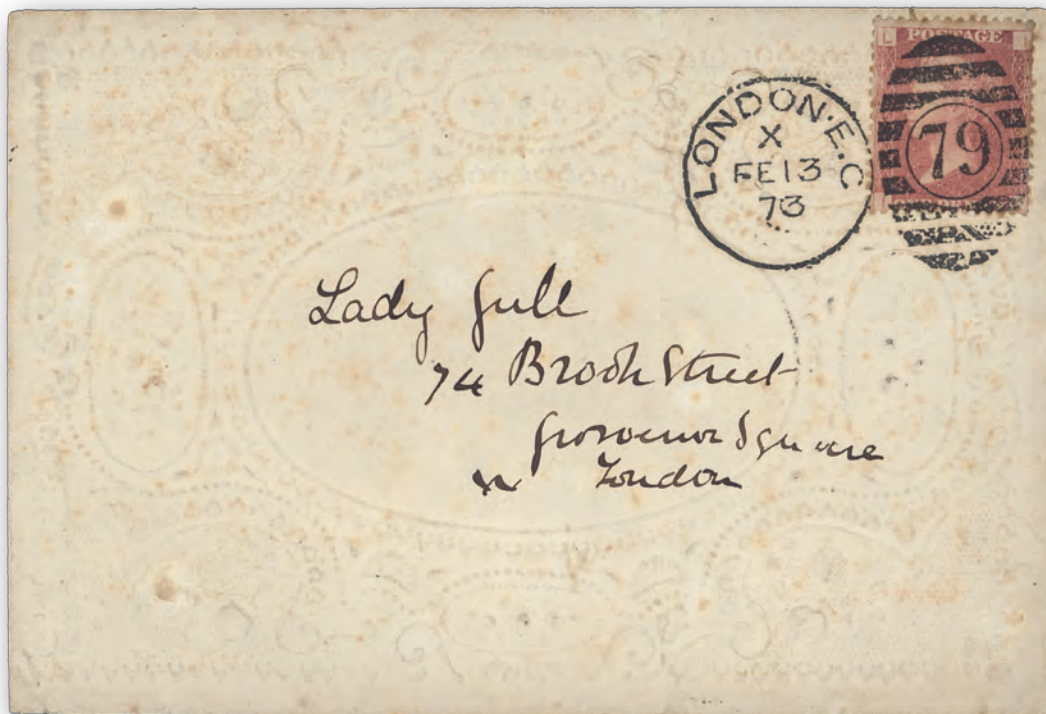 POSTAGE
L I
LONDON·E.C
X
FE13
73
79
Lady Gull
74 Brook Street
Grosvenor Square
London